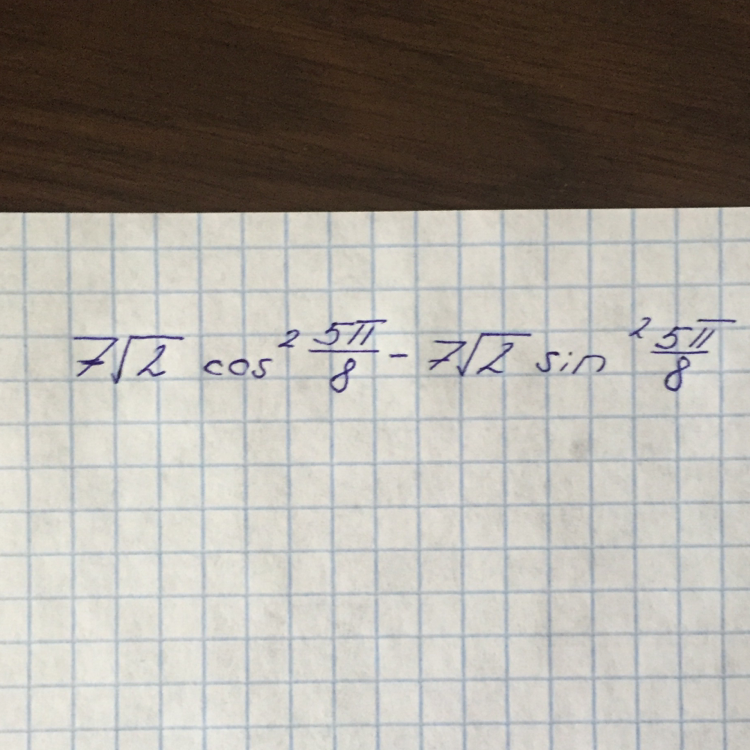 7√2 cos² 5π/8 - 7√2 sin² 5π/8